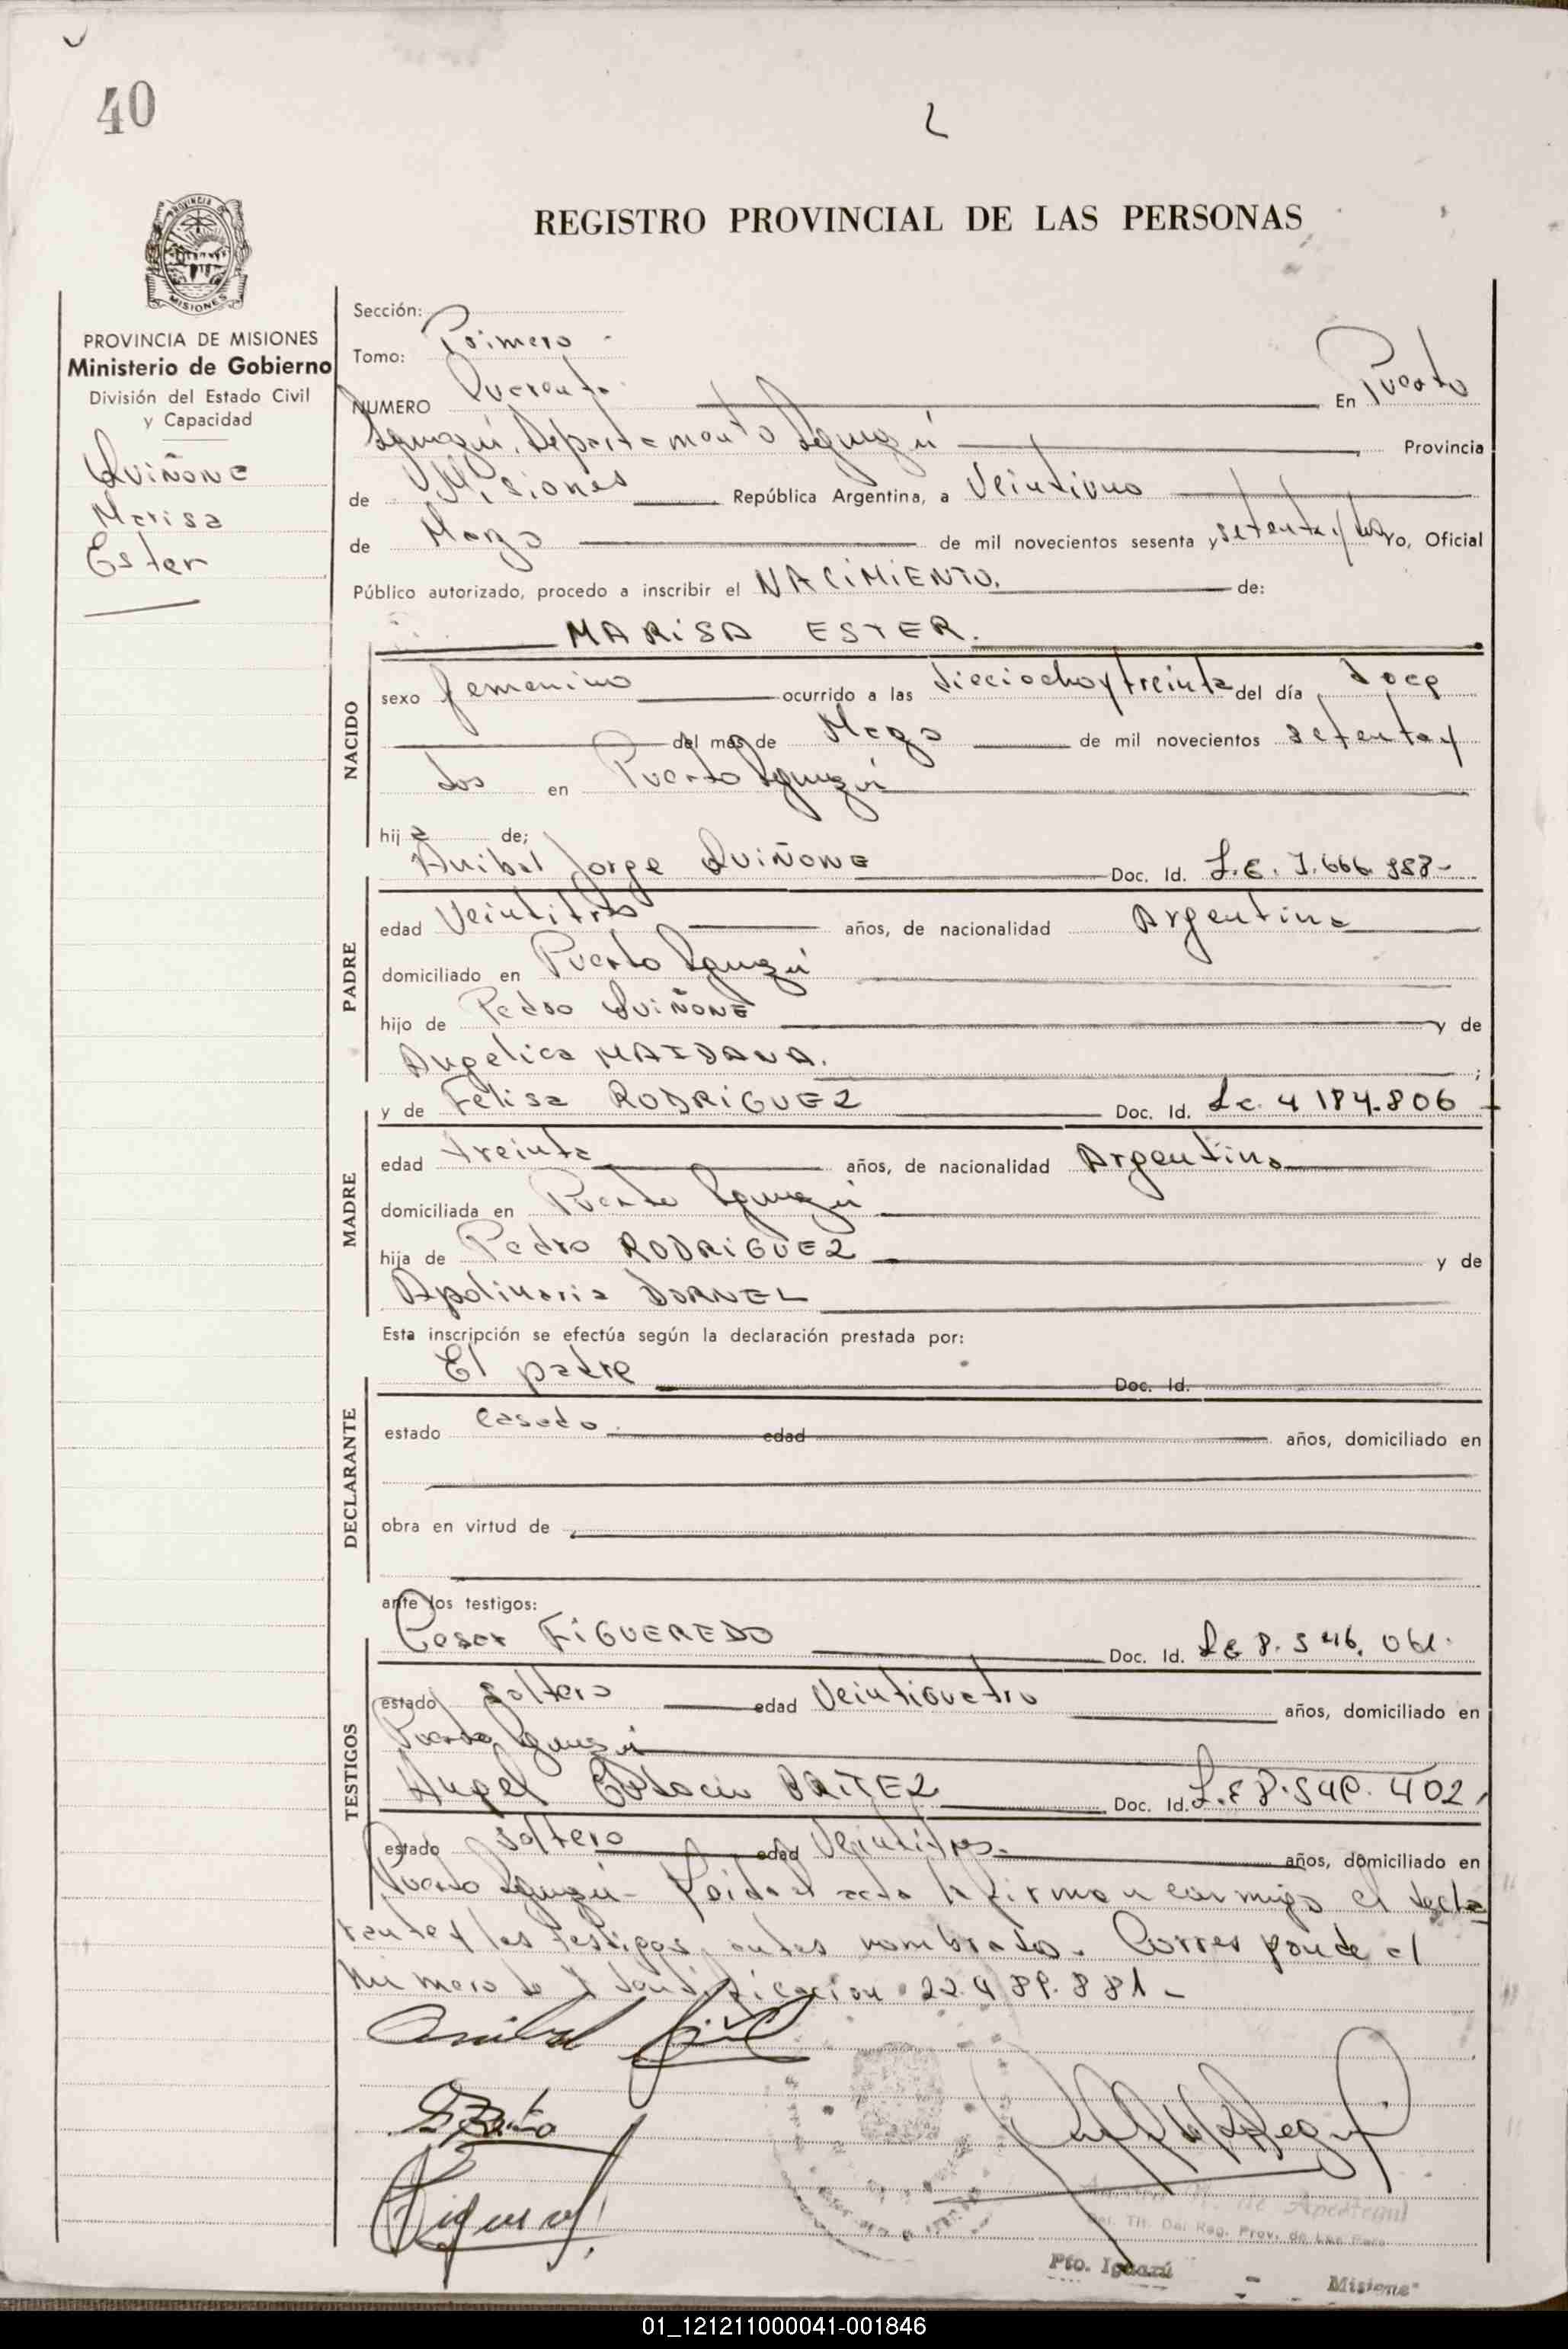 40
2
REGISTRO PROVINCIAL DE LAS PERSONAS
PROVINCIA DE MISIONES
Ministerio de Gobierno
División del Estado Civil
y Capacidad
QUIÑONE
Marisa
Ester
Sección:
Tomo: Primero
NUMERO Cuarenta En Puerto
Iguazú, Departamento Iguazú Provincia
de Misiones República Argentina, a Veintiuno
de Marzo de mil novecientos sesenta y setenta y dos Yo, Oficial
Público autorizado, procedo a inscribir el NACIMIENTO. de:
MARISA ESTER.
NACIDO
sexo femenino ocurrido a las dieciocho y treinta del día doce
del mes de Marzo de mil novecientos setenta y
dos en Puerto Iguazú
hija de;
PADRE
Anibal Jorge QUIÑONE Doc. Id. L.E.
edad Veintitres años, de nacionalidad Argentina
domiciliado en Puerto Iguazú
hijo de Pedro QUIÑONE y de
Angelica MAIDANA. ;
MADRE
y de Felisa RODRIGUEZ Doc. Id. Lc. 4 184.806
edad treinta años, de nacionalidad Argentina
domiciliada en Puerto Iguazú
hija de Pedro RODRIGUEZ y de
Apolinaria DORNEL
Esta inscripción se efectúa según la declaración prestada por:
DECLARANTE
El padre Doc. Id.
estado casado. edad años, domiciliado en
obra en virtud de
ante los testigos:
TESTIGOS
Cesar FIGUEREDO Doc. Id. LE 8. 546. 061.
estado soltero edad Veinticuatro años, domiciliado en
Puerto Iguazú
Angel BRITEZ Doc. Id. L.E 8.549. 402.
estado soltero edad Veintitres. años, domiciliado en
Puerto Iguazú - Leida el acta la firman conmigo el decla
rante y los testigos, antes nombrados. Corresponde el
numero de Identificacion 22.489.881 -
Pto. Iguazú - Misiones
01_121211000041-001846